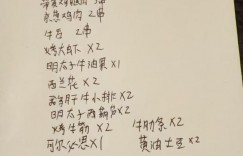 葱鸡肉 2串
牛舌 2串
烤大虾 x2
明太子牛油果 x1
西兰花 x2
牛小排 x2
明太子西葫芦 x2
烤牛筋 x2 牛肋条 x2
可尔必思 x1 黄油土豆 x2